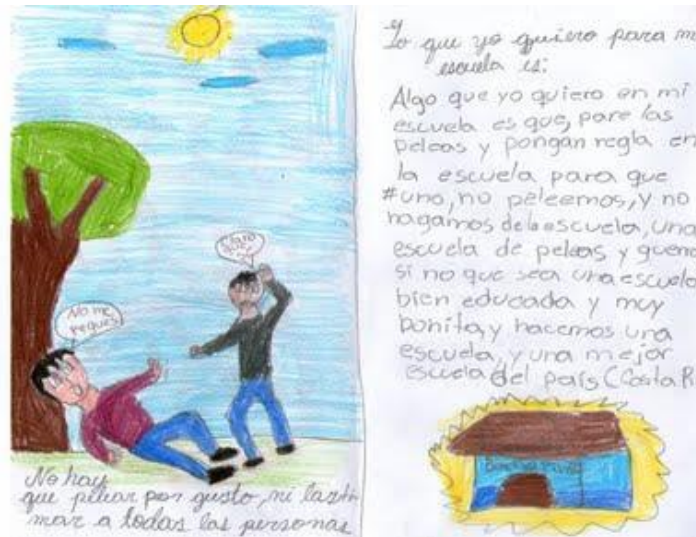 No me
pegues
No hay
que pelear por gusto, ni lasti
mar a todas las personas
Lo que yo quiero para m
escuela es:
Algo que yo quiero en mi
escuela es que, pare las
peleas y pongan regla en
la escuela para que
#uno, no peleemos, y no
hagamos de la escuela, una
escuela de peleas y guerra
si no que sea una escuela
bien educada y muy
bonita, y hacemos una
escuela, y una mejor
escuela del país (Costa R